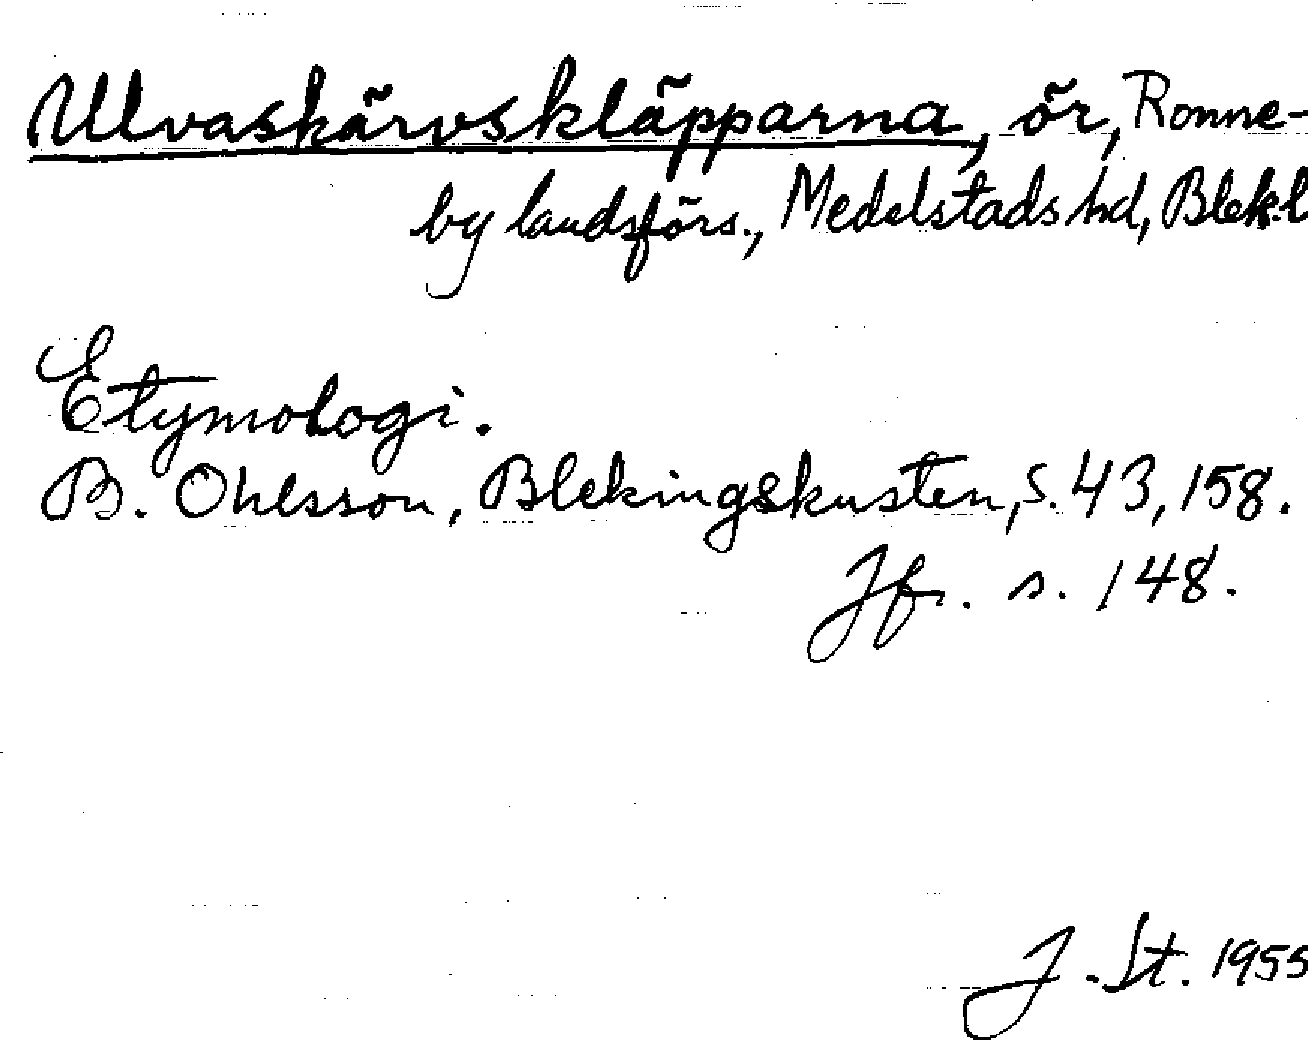 Ulvaskärvskläpparna, ör, Ronne-
by landsförs., Medelstads hd, Blek.l
Etymologi.
B. Ohlsson, Blekingskusten, s. 43, 158.
Jfr. s. 148.
J. St. 1955